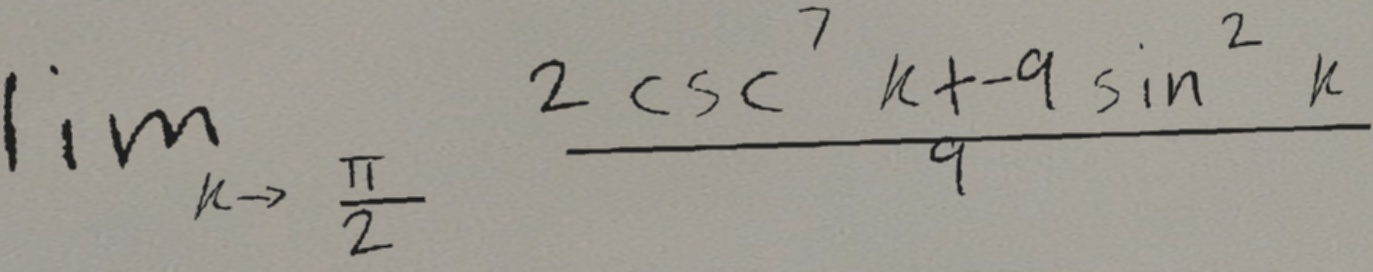 \lim_{k \to \frac{\pi}{2}} \frac{2 \csc^7 k + -9 \sin^2 k}{9}